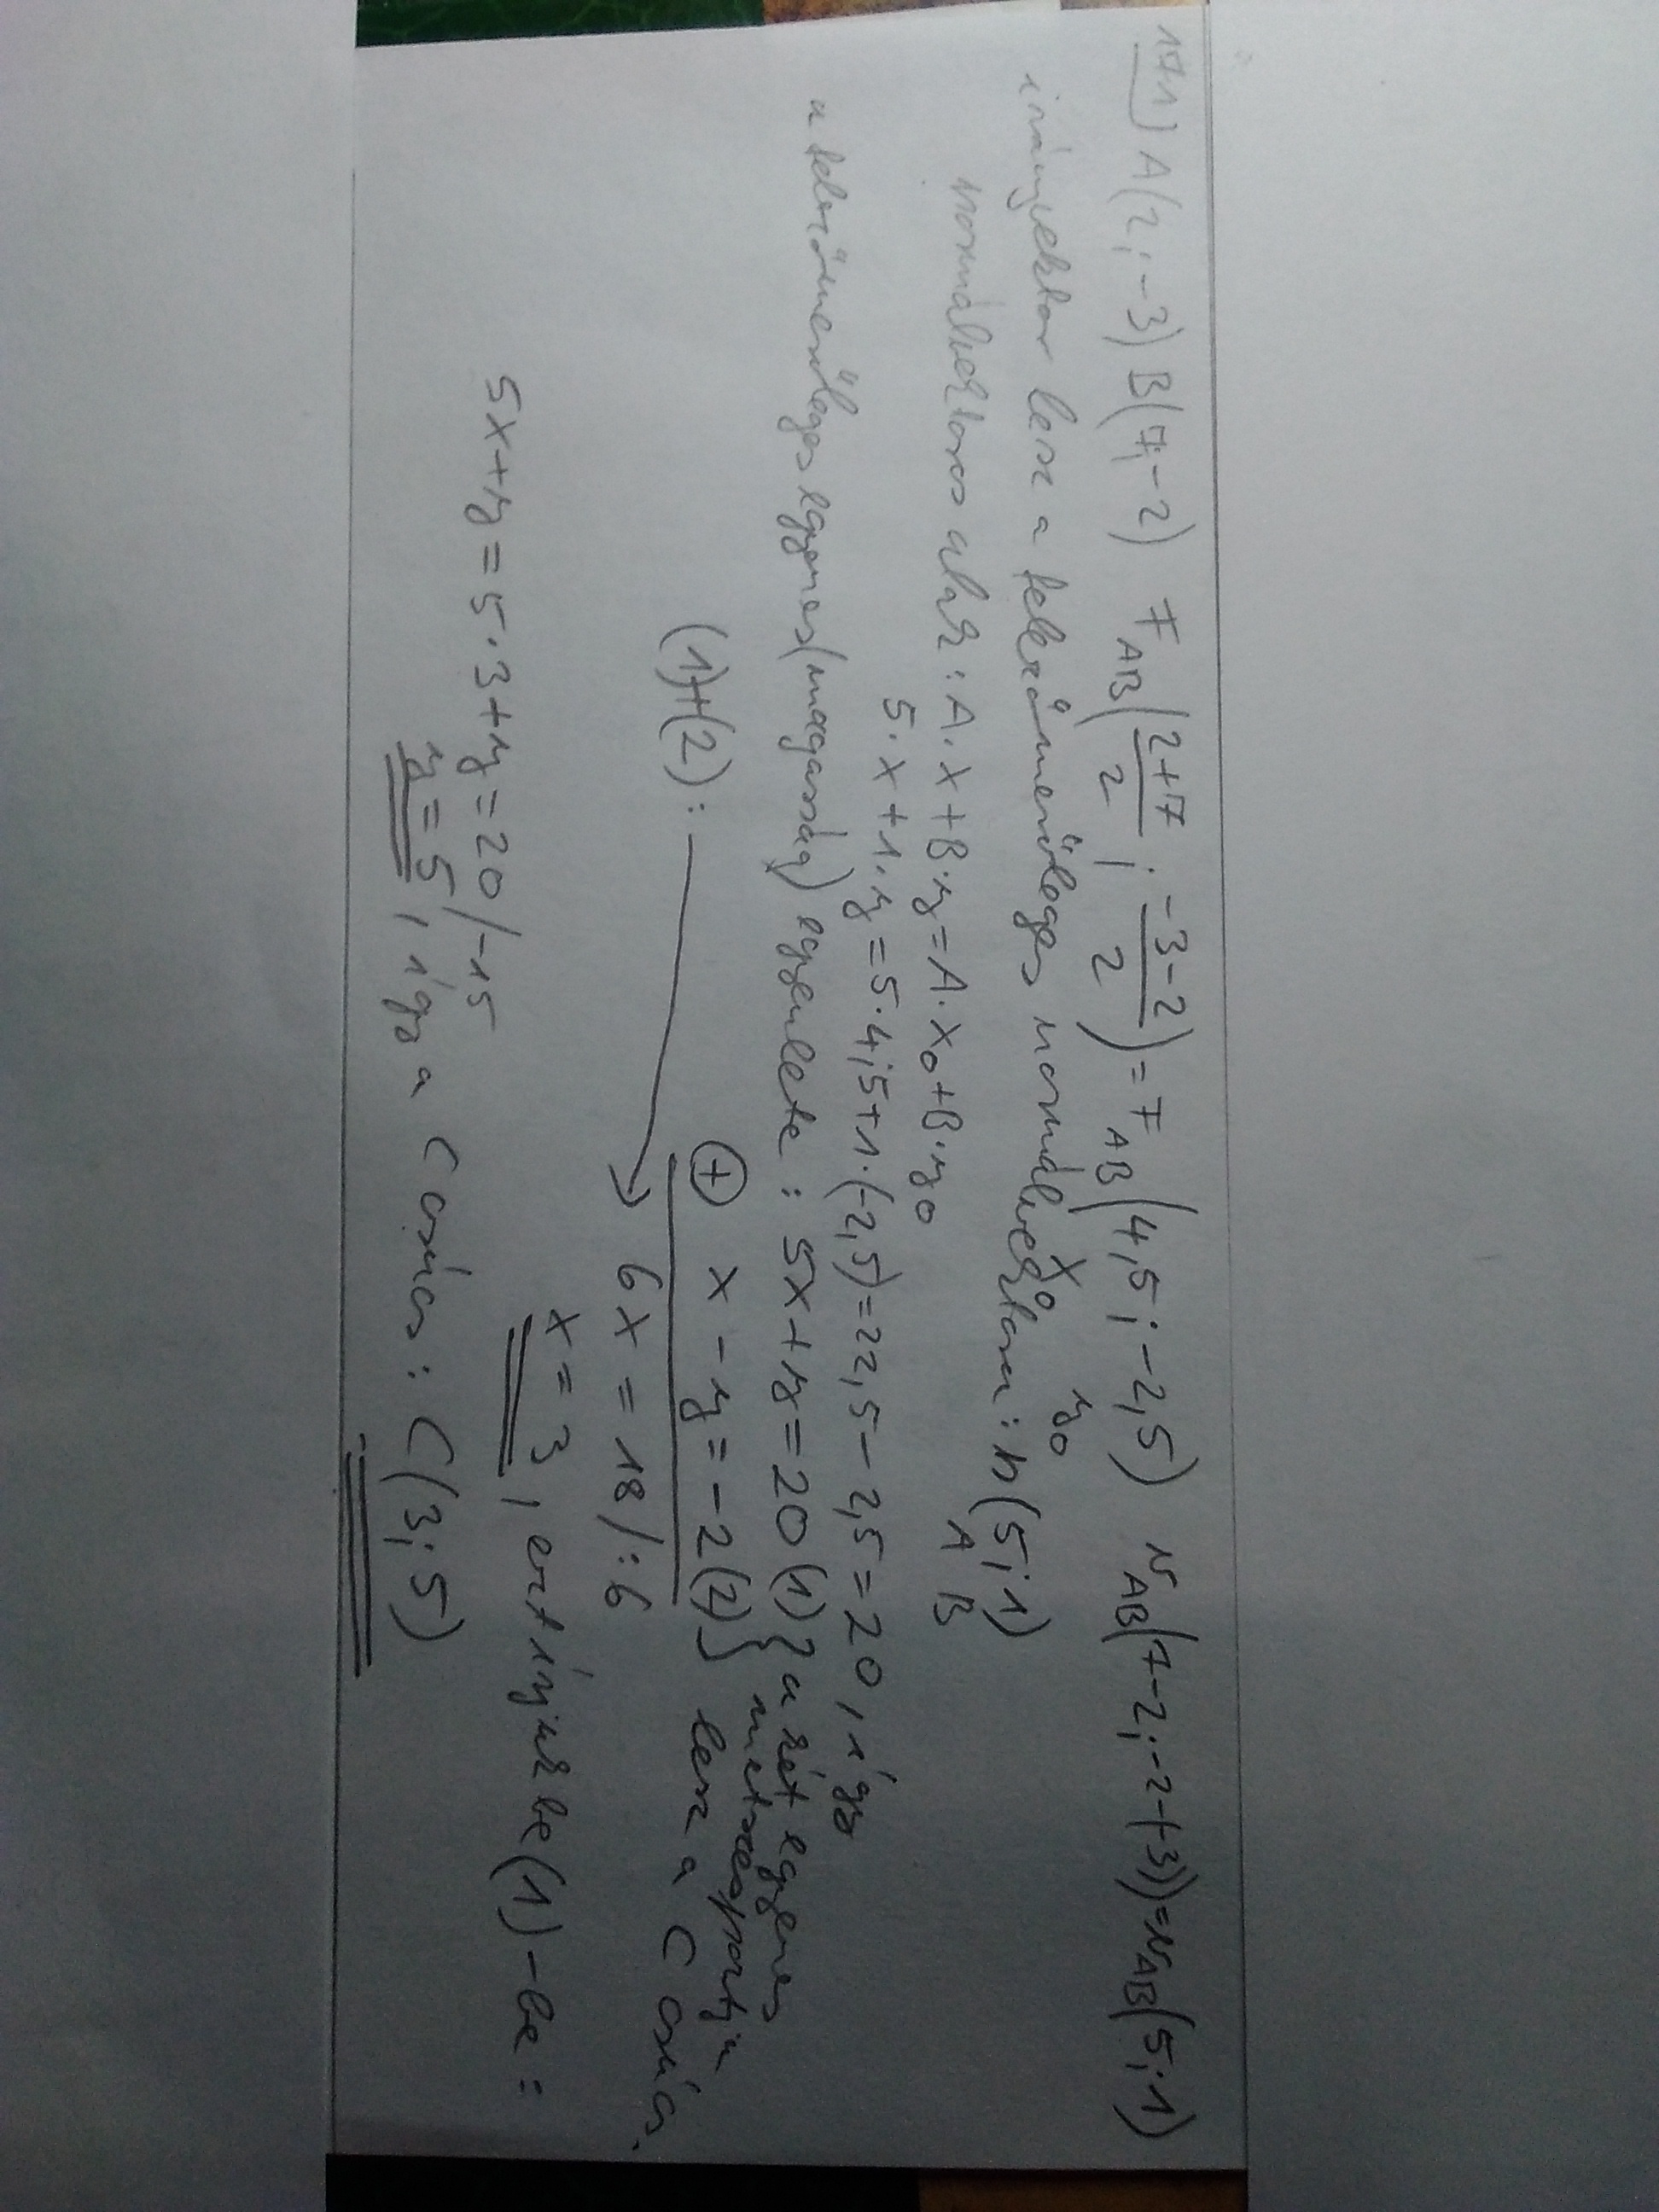 171) A(2;-3) B(7;-2) F_AB(2+7/2 ; -3-2/2) = F_AB(4,5;-2,5) v_AB(7-2;-2-(-3))=v_AB(5;1)
x0 y0
irányvektor lesz a felezőmerőleges normálvektora: n(5;1)
A B
normálvektoros alak: A·x+B·y=A·x0+B·y0
5·x+1·y=5·4,5+1·(-2,5)=22,5-2,5=20, így
a felezőmerőleges egyenes(magasság) egyenlete: 5x+y=20 (1) } a két egyenes
metszéspontja
+ x-y=-2 (2) } lesz a C csúcs.
(1)+(2): → 6x=18/:6
x=3, ezt írjuk be (1)-be:
5x+y=5·3+y=20/-15
y=5, így a C csúcs: C(3;5)